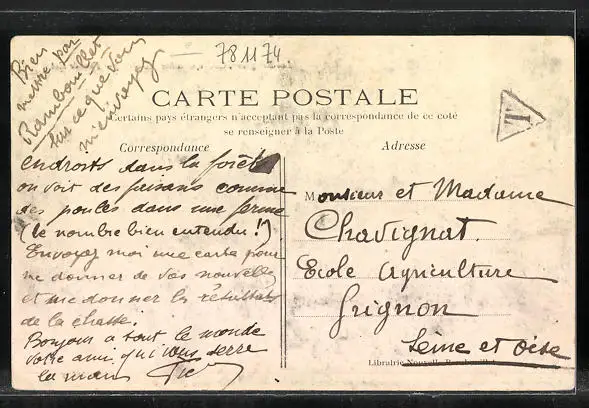 781174
Bien
mettre par
Rambouillet
sur ce que vous
m'envoyez
CARTE POSTALE
Certains pays étrangers n'acceptant pas la correspondance de ce coté
se renseigner à la Poste
T
Correspondance
Adresse
endroits dans la forêt
on voit des faisans comme
des poules dans une ferme
(le nombre bien entendu!)
Envoyez moi une carte pour
me donner de vos nouvelles
et me donner les résultats
de la chasse.
Bonjour à tout le monde
votre ami qui vous serre
la main
Monsieur et Madame
Chavignat.
Ecole Agriculture
Grignon
Seine et Oise
Librairie Nouvelle